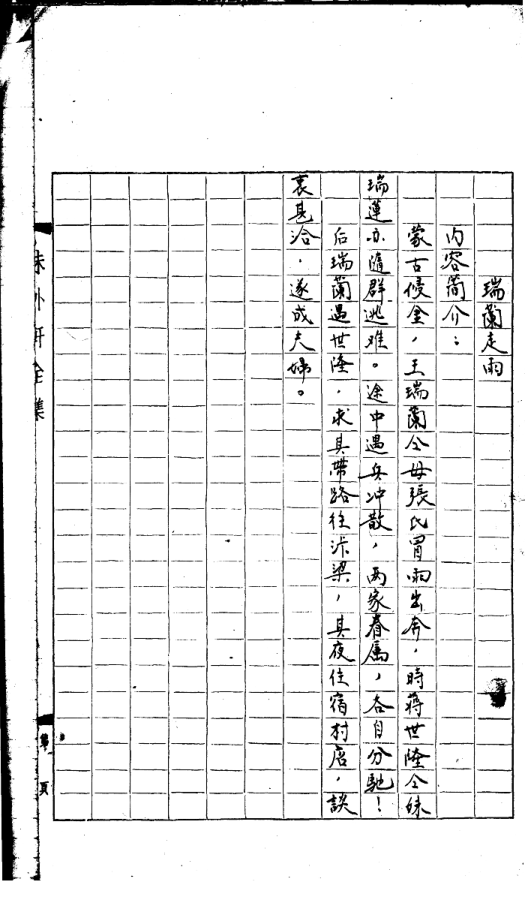 瑞蘭走雨
内容简介：
蒙古侵金，王瑞蘭仝母張氏冒雨出奔，時蒋世隆仝妹
瑞蓮亦随群逃难。途中遇兵冲散，两家眷属，各自分馳！
后瑞蘭遇世隆，求其帶路往汴梁，其夜住宿村店，談
衷甚洽，遂成夫婦。
外轩全集
第 頁